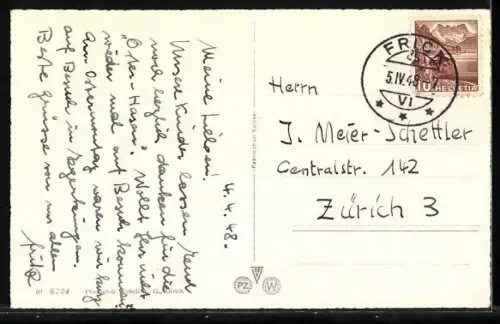 4.4.48.
Meine Lieben!
Unsere Kinder lassen Euch
noch herzlich danken für die
"Oster-Hasen". Wollt Ihr nicht
wieder mal auf Besuch kommen?
Am Ostermontag waren wir kurz
auf Besuch in Tegerfelden.
Beste Grüsse von uns allen
Fritz
FRICK
5.IV.48-7
VI
10 HELVETIA
Herrn
J. Meier-Schettler
Centralstr. 142
Zürich 3
PZ W
nr 6224